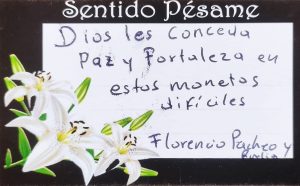 Sentido Pésame
Dios les conceda
Paz y Fortaleza en
estos monetos
difíciles
Florencio Pacheco y
Familia